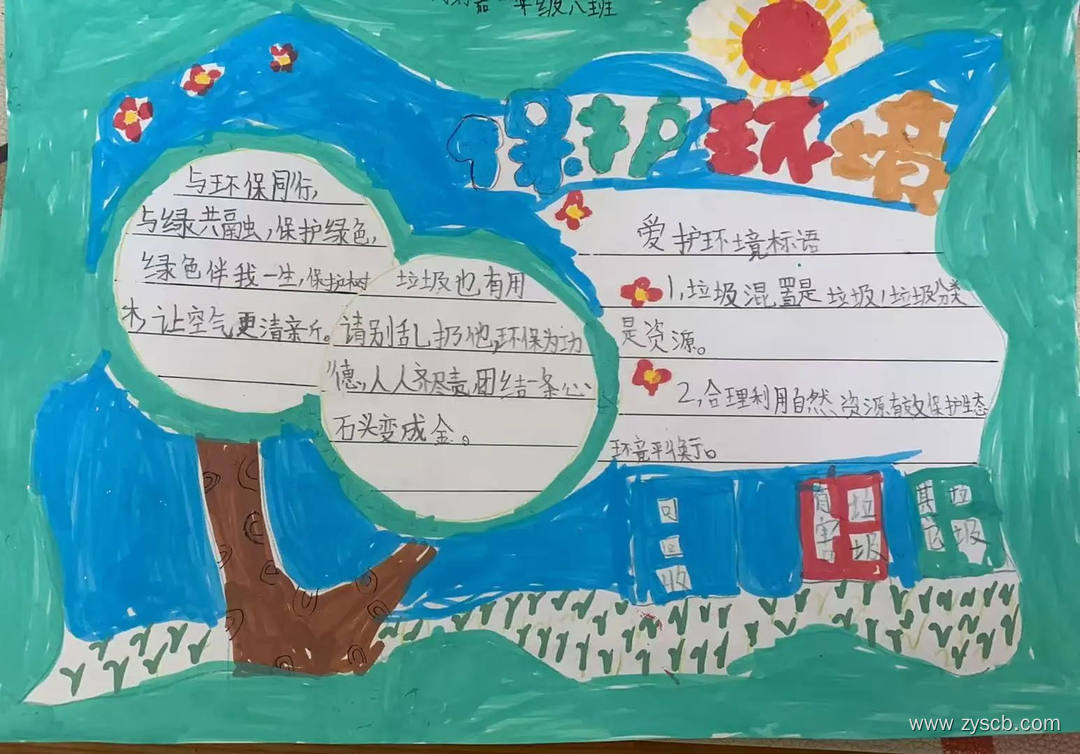 年级八班
保护环境
与环保同行,
与绿共融虫,保护绿色,
绿色伴我一生,保护树
木,让空气更清亲斤。
垃圾也有用
请别乱扔他,环保为功
德,人人齐尽责,团结一条心
石头变成金。
爱护环境标语
1,垃圾混置是垃圾,垃圾分类
是资源。
2,合理利用自然资源,有效保护生态
环境平衡。
可回收
有害垃圾
其它垃圾
www.zyscb.com